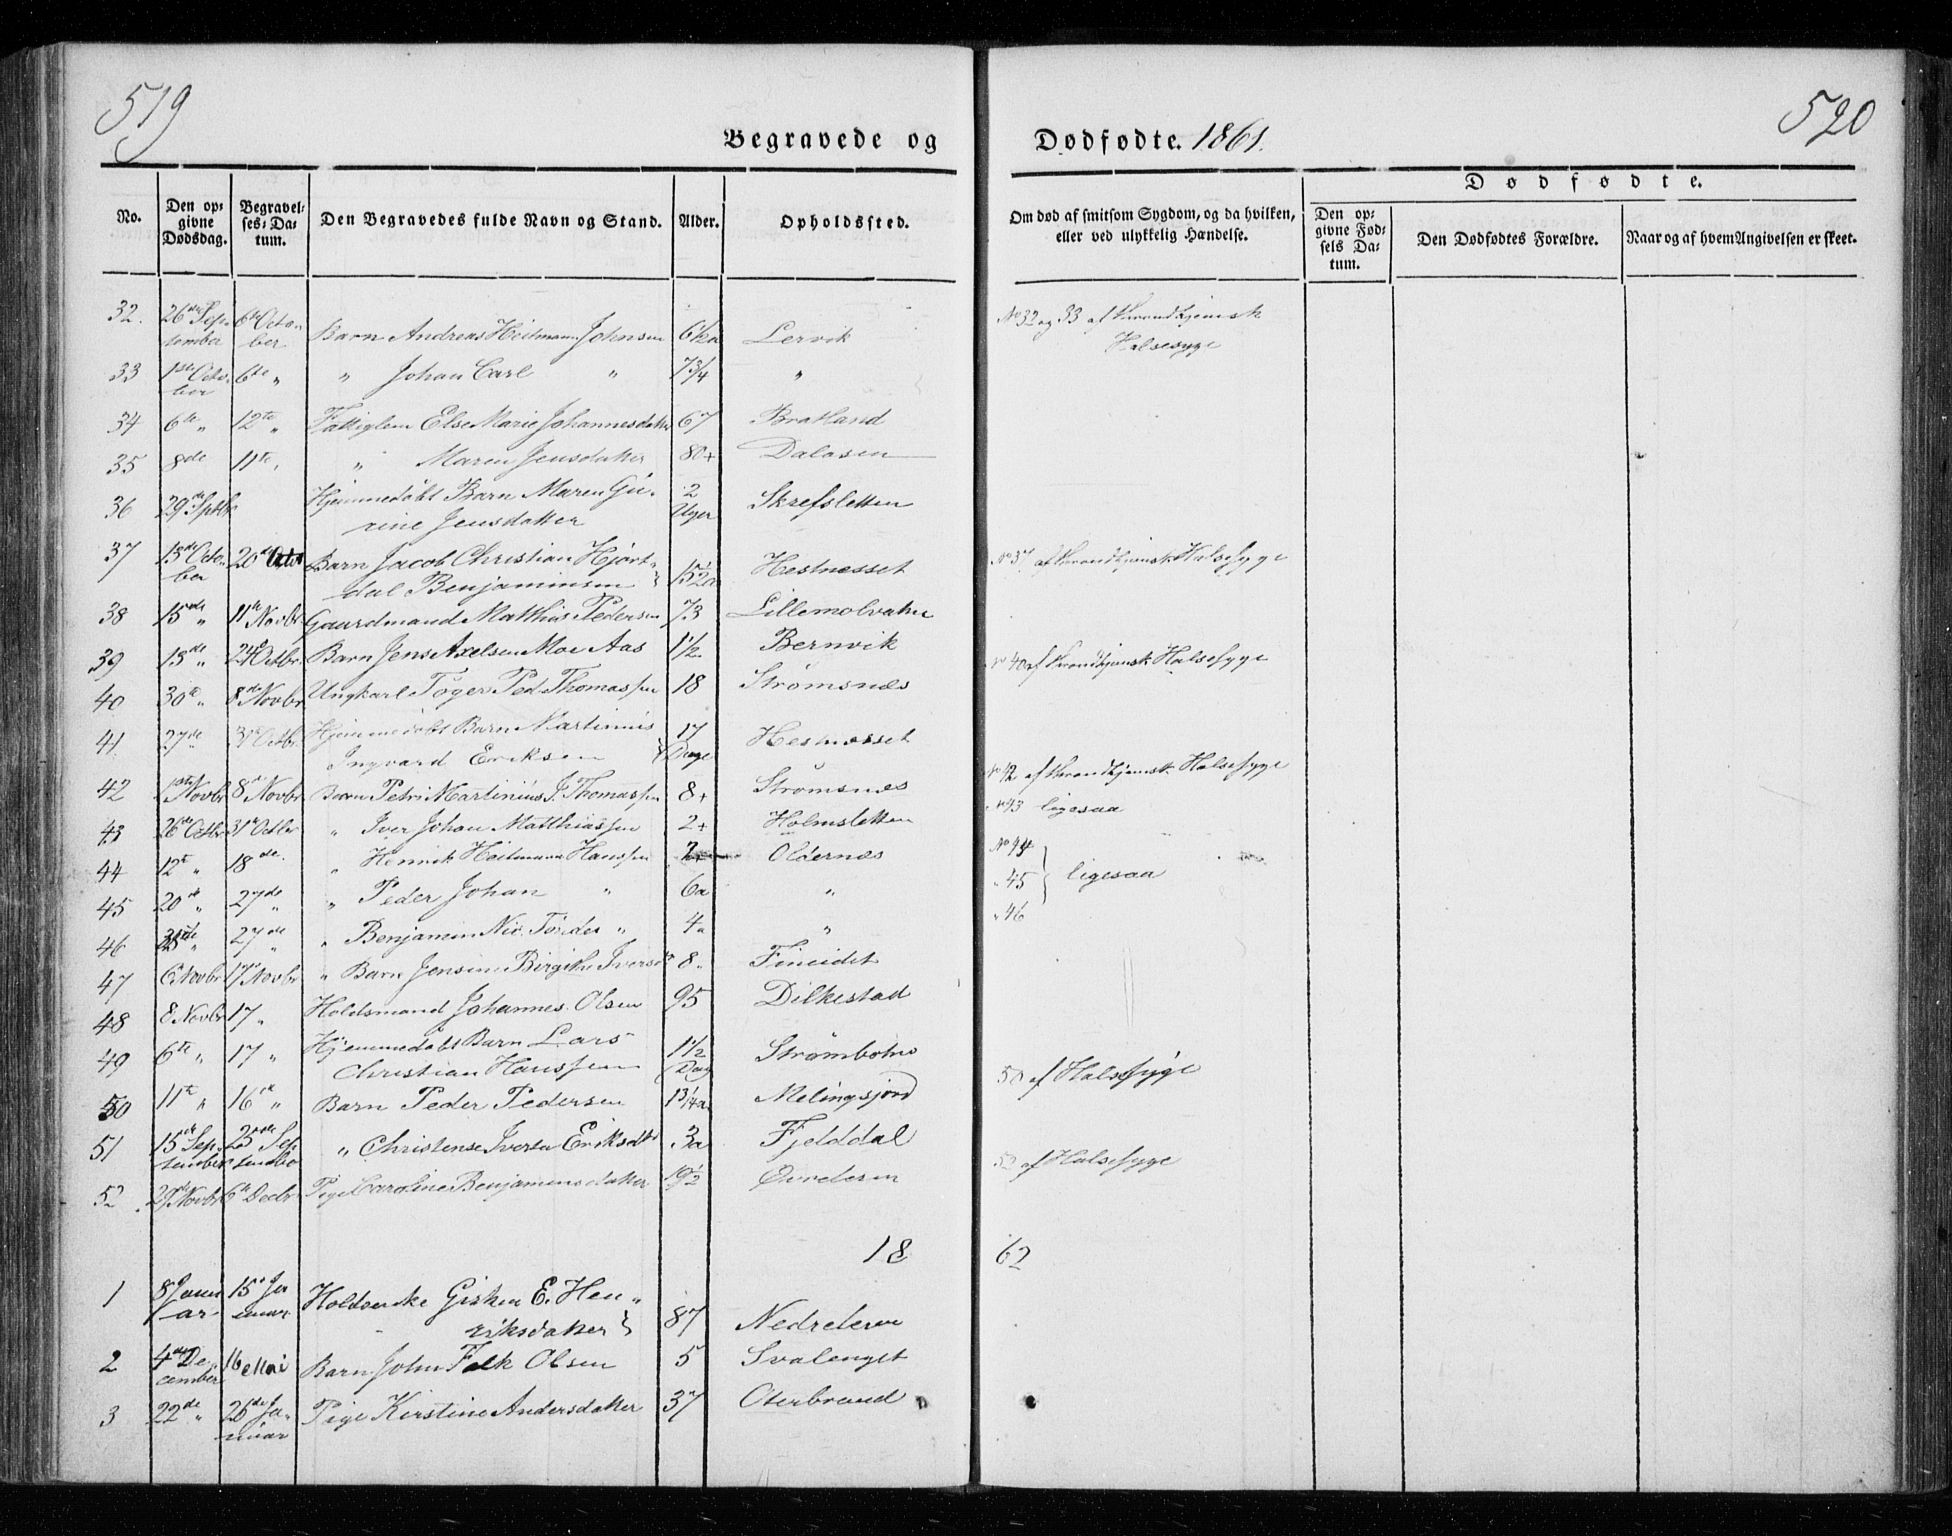 519
520
Begravede og Dødfødte. 1861.
No.
Den opgivne Dødsdag.
Begravelses-Datum.
Den Begravedes fulde Navn og Stand.
Alder.
Opholdssted.
Om død af smitsom Sygdom, og da hvilken, eller ved ulykkelig Hændelse.
Dødfødte.
Den opgivne Fødsels Datum.
Den Dødfødtes Forældre.
Naar og af hvem Angivelsen er skeet.
32. 26de September 6te October Barn Andreas Heitmann Johnsen 6 Lervik No 32 og 33 af Throndhjemsk Halsesyge
33 1ste October 6te " " Johan Carl " 7 3/4 "
34 6te " 12te " Fattiglem Else Marie Johannesdatter 67 Bratland
35 8de 11te " " Maren Jensdatter 80 Dalosen
36 29de Septbr Hjemmedøbt Barn Maren Gurine Jensdatter 2 Uger Skrefsletten
37 13de October 20de Octbr Barn Jacob Christian Hjortdal Benjaminsen Hestnesset No 37 af Throndhjemsk Halsesyge
38 15de " 11te Novbr Gaardmand Matthis Pedersen 73 Lillemolvahn
39 13de " 24 Octbr. Barn Jens Axelsen Moe Aas 1 1/2 Bernvik
40 30te " 8de Novbr Ungkarl Toger Ped. Thomassen 18 Strømsnes No 40 af Throndhjemsk Halsesyge
41 27de 31te Octbr. Hjemmedøbt Barn Martinus Ingvard Eriksen 17 Dage Hestnesset
42 1ste Novbr 8de Novbr Barn Petri Martinius J. Thomassen 8 Strømsnes No 42 af Throndhjemsk Halsesyge
43 26de Octbr 31te Octbr " Iver Johan Matthiassen 2 Holmsletten No 43 ligesaa
44 12te " 18de. " Henrik Heitmann Hanssen 2 Oldernes No 44
45 20de " 27de " " Peder Johan " 6 " " 45 ligesaa
46 27de " " Benjamin Nic. " 4 " " 46
47 6 Novbr 17de Novbr " Barn Jensine Birgithe Iversd 8 " Fineidet
48 8 Novbr 17 " Holdsmand Johannes Olsen 95 Dilkestad
49 6te " 17 " Hjemmedøbt Barn Lars Christian Hanssen 1 1/2 Dag Strømbotn
50 11te " 16de " Barn Peder Pedersen 13 1/4 Melingsjord 50 af Halsesyge
51 15de September 23de September " Christense Iverta Eriksdtr 3 Fjelddal
52 29de Novbr 6te Decbr Pige Caroline Benjaminsdatter 19 1/2 Øvrederen 52 af Halsesyge
18 62
1 8 Januar 15de Januar Holdenke Gisken E. Henriksdatter 87 Nedrederen
2 4de December 16 Mai Barn John Falk Olsen 5 Svalenget
3 22de " 26de Januar Pige Kirstine Andersdatter 37 Oterbrand